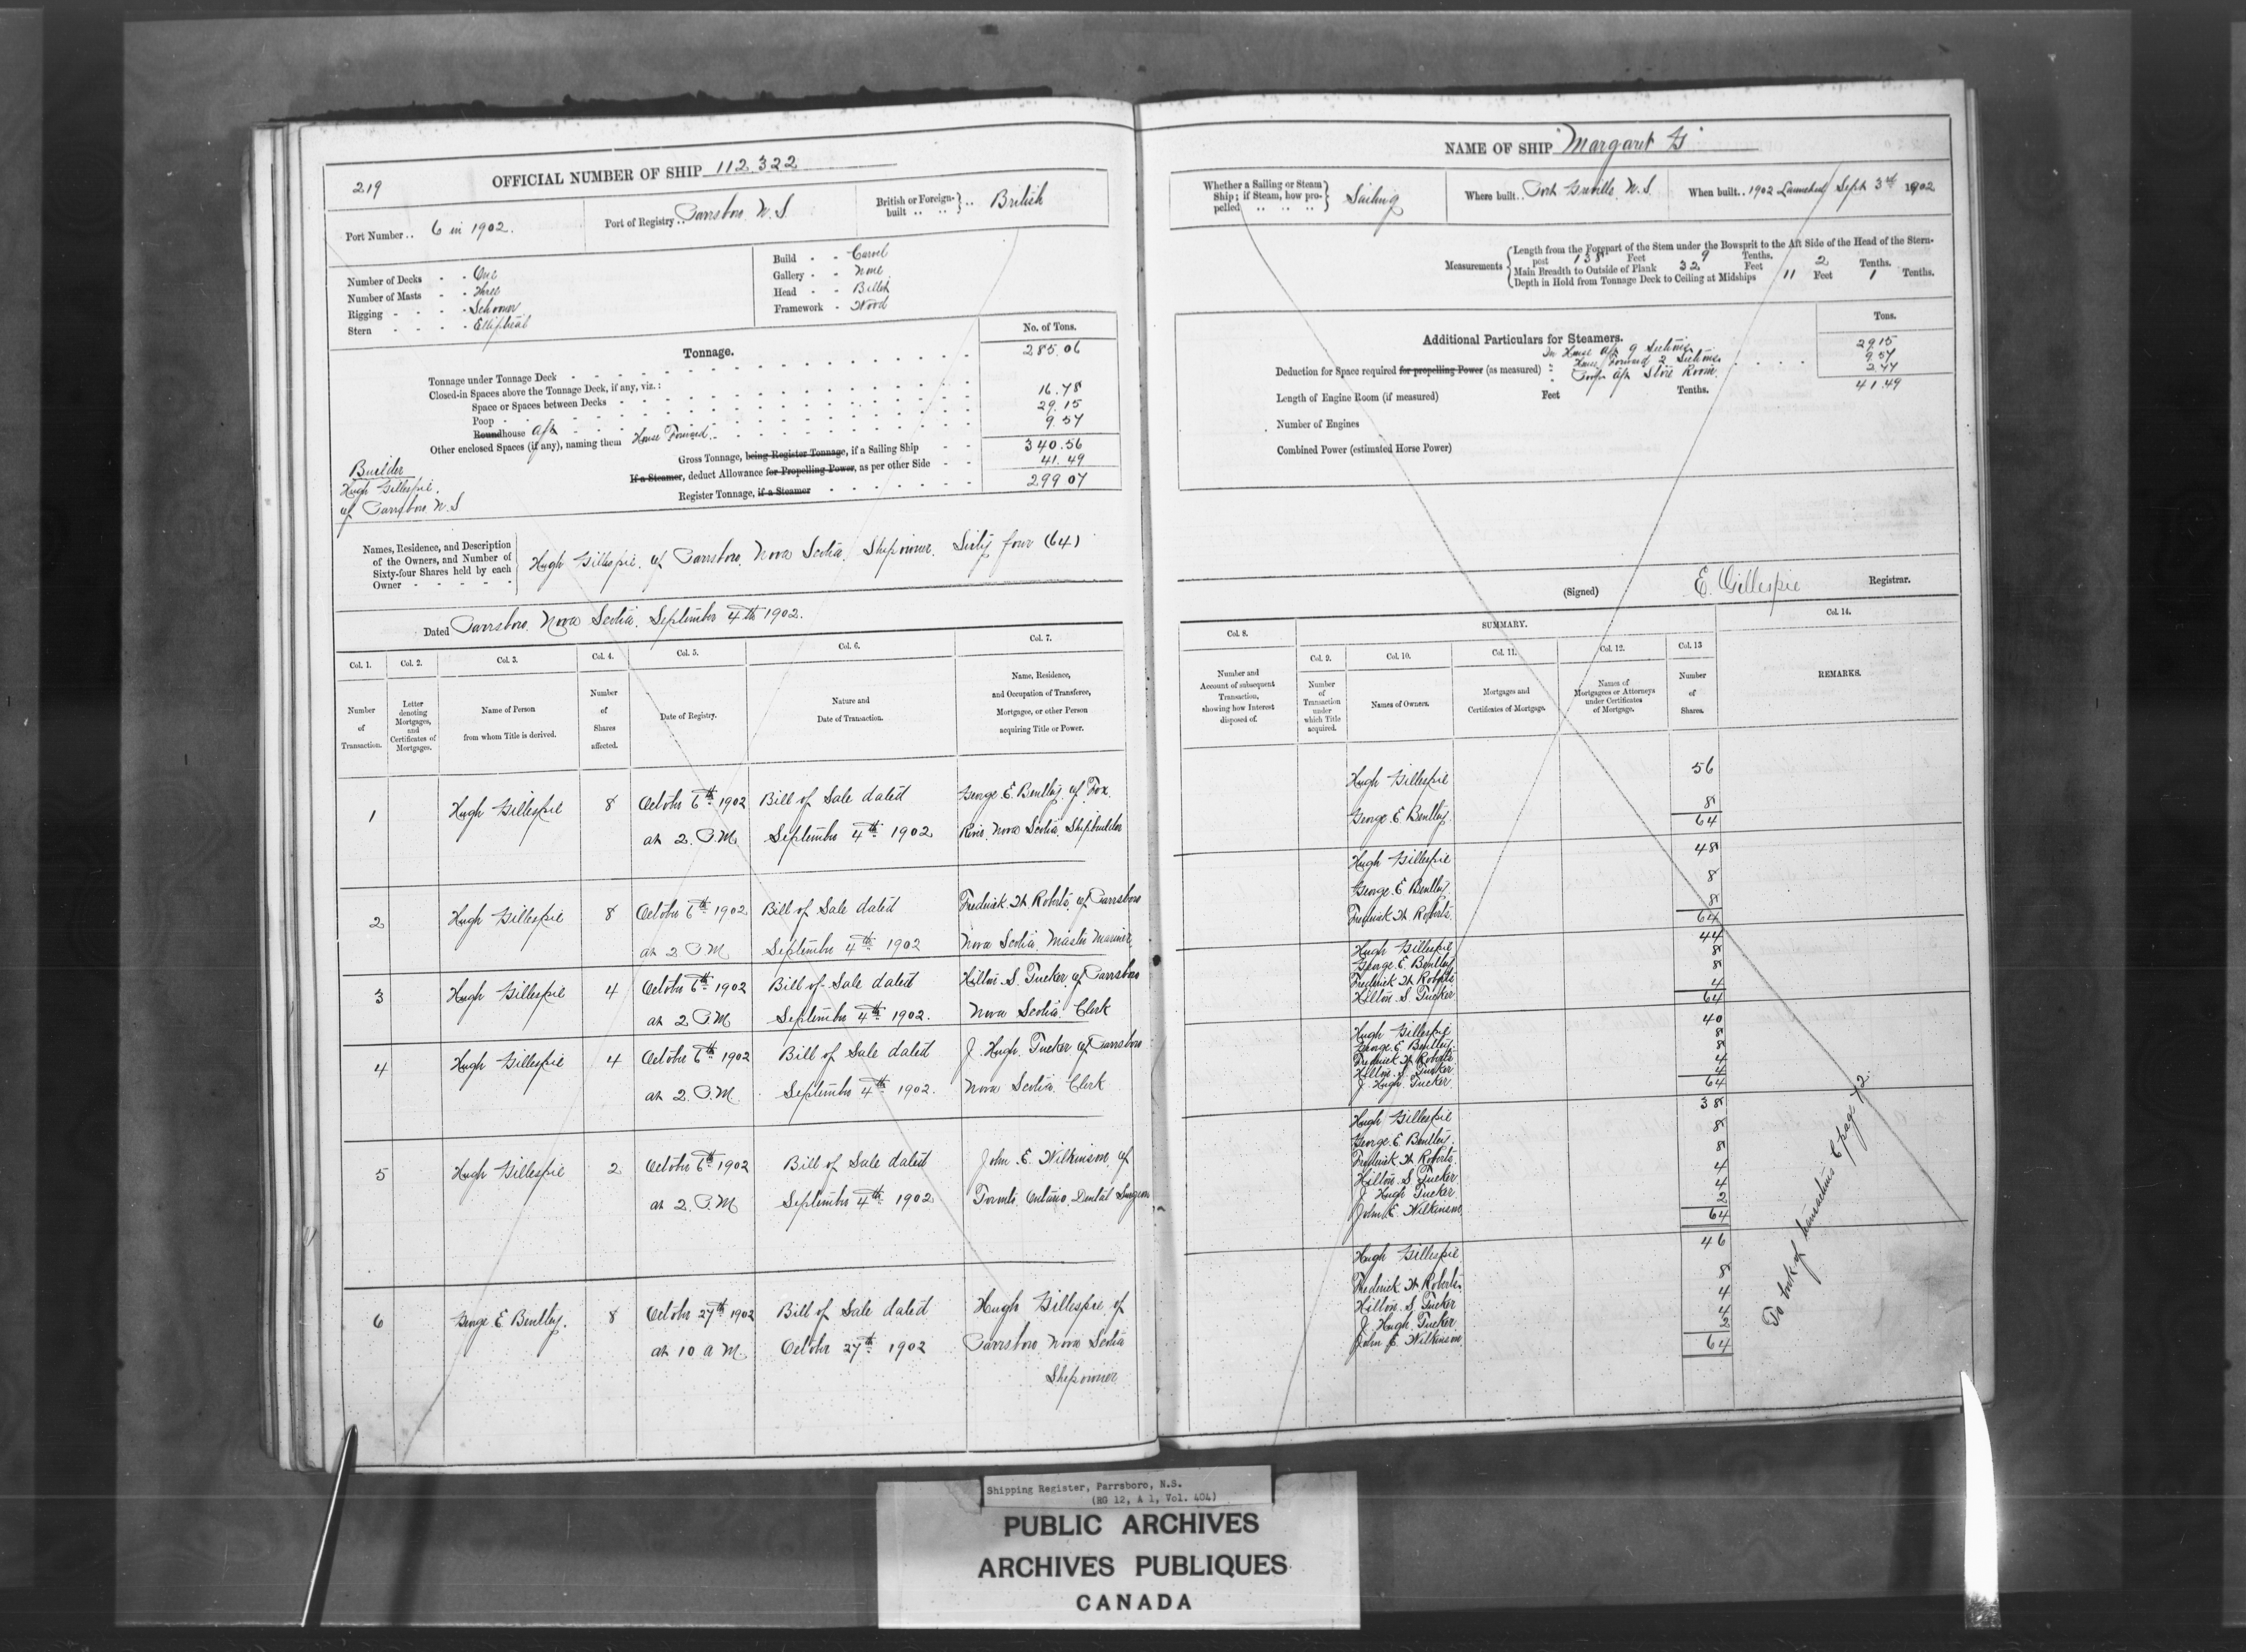 219
OFFICIAL NUMBER OF SHIP 112.322
Port Number .. 6 in 1902.
Port of Registry .. Parrsboro N.S
British or Foreign-built .. British
Number of Decks - - One
Number of Masts - - Three
Rigging - - - - Schooner
Stern - - - - Elliptical
Build - - Carvel
Gallery - - None
Head - - Billet
Framework - Wood
Tonnage.
No. of Tons.
Tonnage under Tonnage Deck 285.06
Closed-in Spaces above the Tonnage Deck, if any, viz.:
Space or Spaces between Decks
Poop 16.78
Roundhouse Aft 29.15
Other enclosed Spaces (if any), naming them House Forward 9.57
Gross Tonnage, being Register Tonnage, if a Sailing Ship 340.56
If a Steamer, deduct Allowance for Propelling Power, as per other Side 41.49
Register Tonnage, if a Steamer 299 07
Builder
Hugh Gillespie.
of Parrsboro N.S
Names, Residence, and Description
of the Owners, and Number of
Sixty-four Shares held by each
Owner
Hugh Gillespie. of Parrsboro. Nova Scotia. Shipowner. Sixty four (64)
Dated Parrsboro. Nova Scotia. September 4th 1902.
Col. 1. Col. 2. Col. 3. Col. 4. Col. 5. Col. 6. Col. 7.
Number of Transaction.
Letter denoting Mortgages, and Certificates of Mortgages.
Name of Person from whom Title is derived.
Number of Shares affected.
Date of Registry.
Nature and Date of Transaction.
Name, Residence, and Occupation of Transferee, Mortgagee, or other Person acquiring Title or Power.
1 Hugh Gillespie 8 October 6th 1902 Bill of Sale dated George E. Bentley. of Fox.
at 2. P.M September 4th 1902 River. Nova Scotia. Shipbuilder
2 Hugh Gillespie 8 October 6th 1902 Bill of Sale dated Frederick W Roberts. of Parrsboro
at 2 P.M September 4th 1902 Nova Scotia. Master Mariner.
3 Hugh Gillespie 4 October 6th 1902 Bill of Sale dated Hilton. S. Tucker. of Parrsboro
at 2 P.M September 4th 1902. Nova Scotia. Clerk
4 Hugh Gillespie 4 October 6th 1902 Bill of Sale dated J. Hugh. Tucker of Parrsboro
at 2. P.M. September 4th 1902. Nova Scotia. Clerk
5 Hugh Gillespie 2 October 6th 1902 Bill of Sale dated John. E. Wilkinson. of
at 2. P.M September 4th 1902 Toronto. Ontario. Dental Surgeon
6 George. E Bentley. 8 October 27th 1902 Bill of Sale dated Hugh Gillespie of
at 10 A M. October 27th 1902 Parrsboro Nova Scotia
Shipowner
NAME OF SHIP "Margaret G"
Whether a Sailing or Steam Ship; if Steam, how propelled Sailing
Where built .. Port Greville. N.S.
When built .. 1902 Launched Sept 3rd 1902
Measurements
Length from the Forepart of the Stem under the Bowsprit to the Aft Side of the Head of the Stern-
post 138 Feet 9 Tenths.
Main Breadth to Outside of Plank 32 Feet 2 Tenths.
Depth in Hold from Tonnage Deck to Ceiling at Midships 11 Feet 1 Tenths.
Additional Particulars for Steamers.
Tons.
In House Aft 9 Sections 29.15
Deduction for Space required for propelling Power (as measured) " House Forward 2 Sections 9.57
" Poop Aft Store Room. 2.77
41.49
Length of Engine Room (if measured) Feet Tenths.
Number of Engines
Combined Power (estimated Horse Power)
(Signed) E. Gillespie Registrar.
Col. 8.
SUMMARY.
Col. 14.
Col. 9. Col. 10. Col. 11. Col. 12. Col. 13
Number and Account of subsequent Transaction, showing how Interest disposed of.
Number of Transaction under which Title acquired.
Names of Owners.
Mortgages and Certificates of Mortgage.
Names of Mortgagees or Attorneys under Certificates of Mortgage.
Number of Shares.
REMARKS.
Hugh Gillespie 56
George. E Bentley. 8
64
Hugh Gillespie 48
George. E Bentley. 8
Frederick W Roberts. 8
64
Hugh Gillespie 44
George. E. Bentley 8
Frederick W Roberts 8
Hilton. S. Tucker 4
64
Hugh Gillespie 40
George. E Bentley. 8
Frederick W Roberts. 8
Hilton. S. Tucker 4
J. Hugh. Tucker. 4
64
Hugh Gillespie 38
George. E. Bentley. 8
Frederick W Roberts. 8
Hilton. S Tucker 4
J. Hugh Tucker 4
John. E. Wilkinson 2
64
Hugh Gillespie. 46
Frederick W Roberts. 8
Hilton. S Tucker 4
J. Hugh. Tucker. 4
John E. Wilkinson. 2
64
To book of transactions C page 72
Shipping Register, Parrsboro, N.S.
(RG 12, A 1, Vol. 404)
PUBLIC ARCHIVES
ARCHIVES PUBLIQUES
CANADA